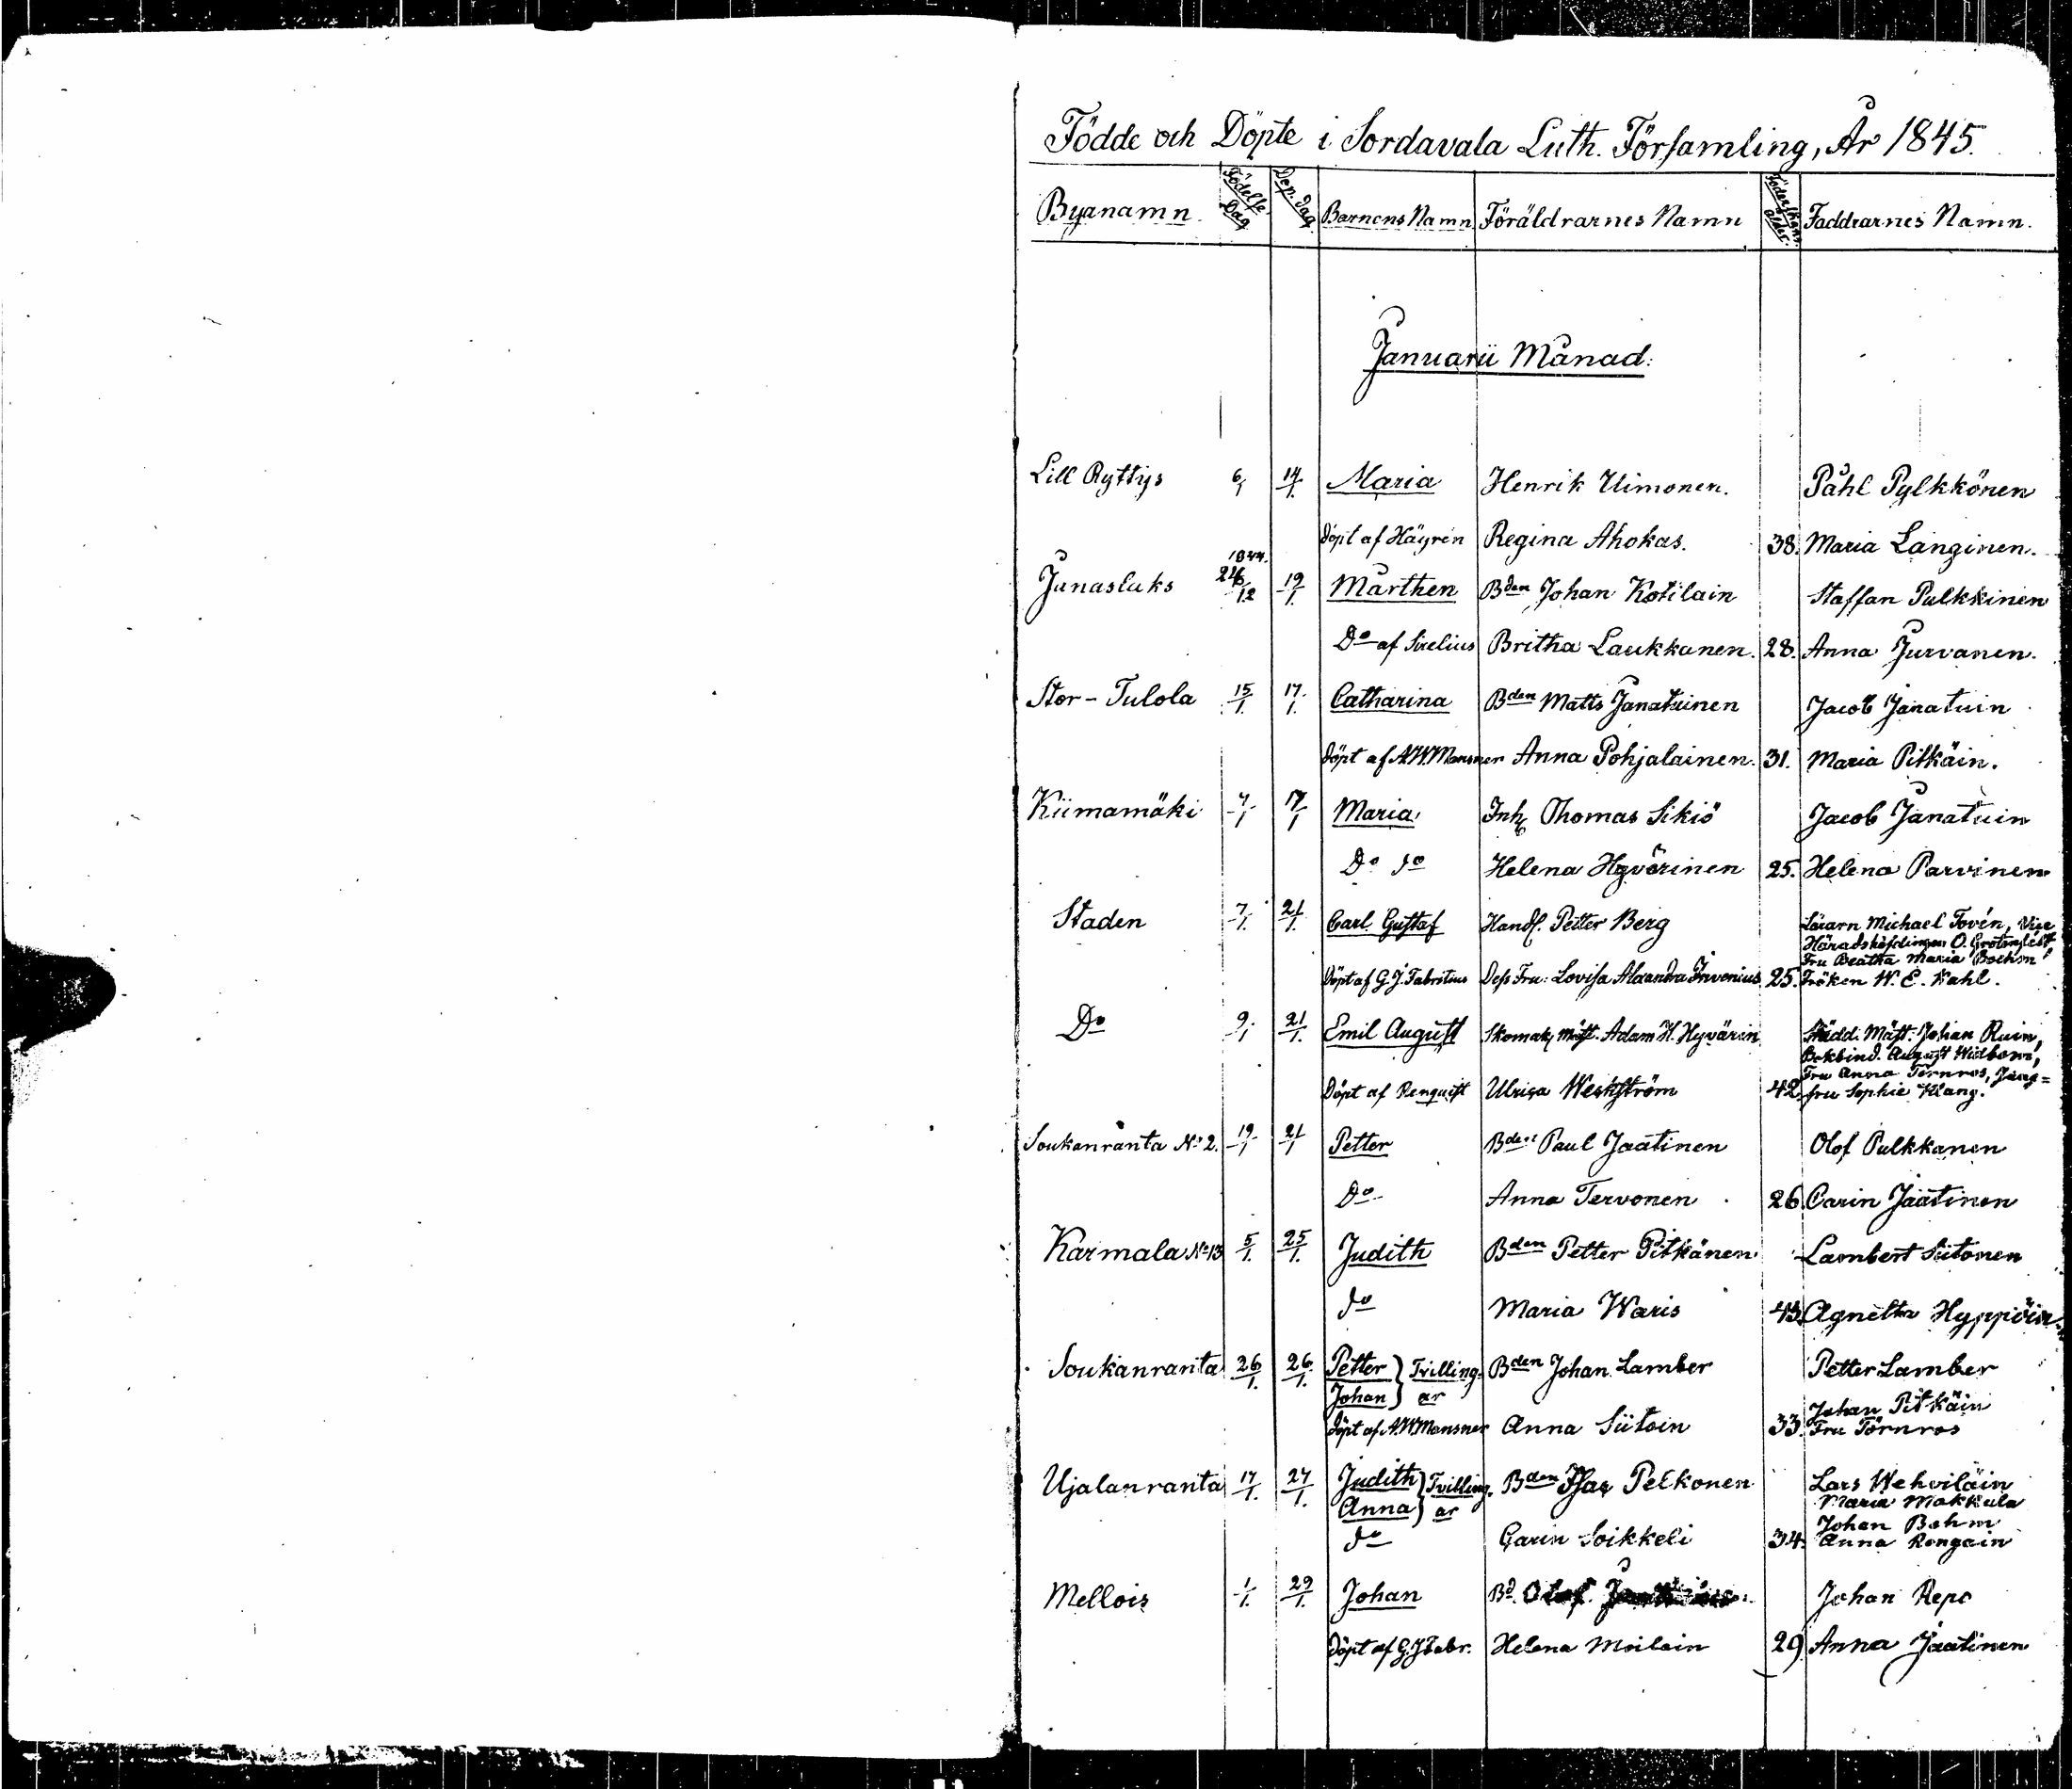 Födde och Döpte i Sordavala Luth. Församling, År 1845.
Byanamn. Födelse Dag Dop. dag Barnens Namn Föräldrarnes Namn ålder. Faddrarnes Namn.
Januarii Månad:
Lill Ryttys 6/1 14/1. Maria Henrik Uimonen. Påhl Pylkkönen
Döpt af Häyrén Regina Ahokas. 38. Maria Langinen.
1844.
Janaslaks 12 19/1. Mårthen Bden Johan Kotilain Staffan Pulkkinen
Do af Sirelius Britha Laukkanen. 28. Anna Jurvanen.
Stor-Tulola 15/1. 17/1. Catharina Bden Matts Janatuinen Jacob Janatuin
Döpt af A.W. Mansner Anna Pohjalainen. 31. Maria Pitkäin.
Kiimamäki 7/1 17/1 Maria Inh Thomas Sikiö Jacob Janatuin
Do do Helena Hyvärinen 25. Helena Parvinen
Staden 7/1. 21/1. Carl Gustaf Handl. Petter Berg Michael Tovén, Vice
Häradshöfdingen O. Grotenfelt,
Fru Beatha Maria Boehm
Döpt af G.J. Fabritius Dess Fru: Lovisa Alexandra Invenius 25. Fröken W. E. Wahl.
Do 9/1 21/1. Emil August Skomak Mäst. Adam H. Hyvärin Mäst. Johan Ruin,
Bokbind. August Widbom,
Fru Anna Törnros, Jung=
Döpt af Renquist Ulrica Weckström 42. fru Sophie Klang.
Soukanranta No 2. 19/1 21/1 Petter Bden Paul Jaatinen Olof Pulkkanen
Do Anna Tervonen 26 Carin Jaatinen
Karmala No 13 5/1. 25/1. Judith Bden Petter Pitkänen Lambert Siitonen
do Maria Waris 43. Agnetha
Soukanranta 26/1. 26/1. Petter } Tvilling- Bden Johan Lamber Petter Lamber
Johan } ar Johan Pitkäin
Döpt af A.W. Mansner Anna Siitoin 33. Fru Törnros
Ujalanranta 17/1. 27/1. Judith } Tvilling- Bden Isac Pelkonen Lars Wehviläin
Anna } ar Maria Makkula
Johan Bohm
do Carin Soikkeli 34. Anna Rongain
Mellois 1/1. 29/1. Johan Bd. Olof Johan Repo
Döpt af G.J. Fabr. Helena Moilain 29 Anna Jaatinen